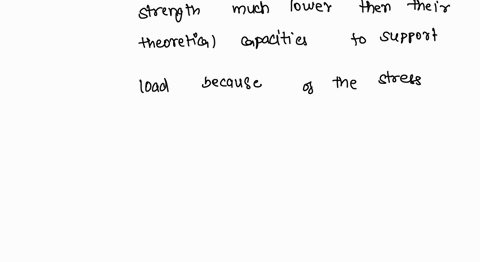 strength much lower then their
theoretical capacities to support
load because of the stress